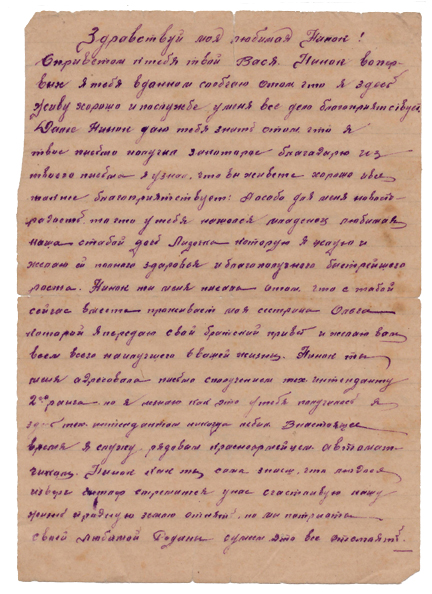 Здравствуй моя любимая Нинок!
С приветом к тебе твой Вася. Нинок во пер-
вых я тебе в данном сообщаю о том что я здоров
живу хорошо и по службе у меня все дело благоприятствует
Далее Нинок даю тебе знать о том, что я
твое письмо получил за которое благодарю из
твоего письма я узнал, что вы живете хорошо и все
также благоприятствует: А особо для меня
радость та что у тебя нашелся младенец любимая
наша с тобой дочь Лидочка которую я целую и
желаю ей полного здоровья и благополучного быстрейшего
роста. Нинок ты меня писала о том, что с тобой
сейчас вместе проживает моя сестрица Ольга
которой я передаю свой братский привет и желаю вам
всем всего наилучшего в вашей жизни. Нинок ты
меня адресовала письмо техинтенданту
2го ранга но я не как это у тебя получилось я
техинтендантом никогда не был. В настоящее
время я служу рядовым красноармейцем автомат-
чиком. Нинок как ты сама знаешь, что
изверг стремится у нас счастливую нашу
жизнь и родную землю отнять, но мы патриоты
своей любимой Родины сумеем это все отстоять.